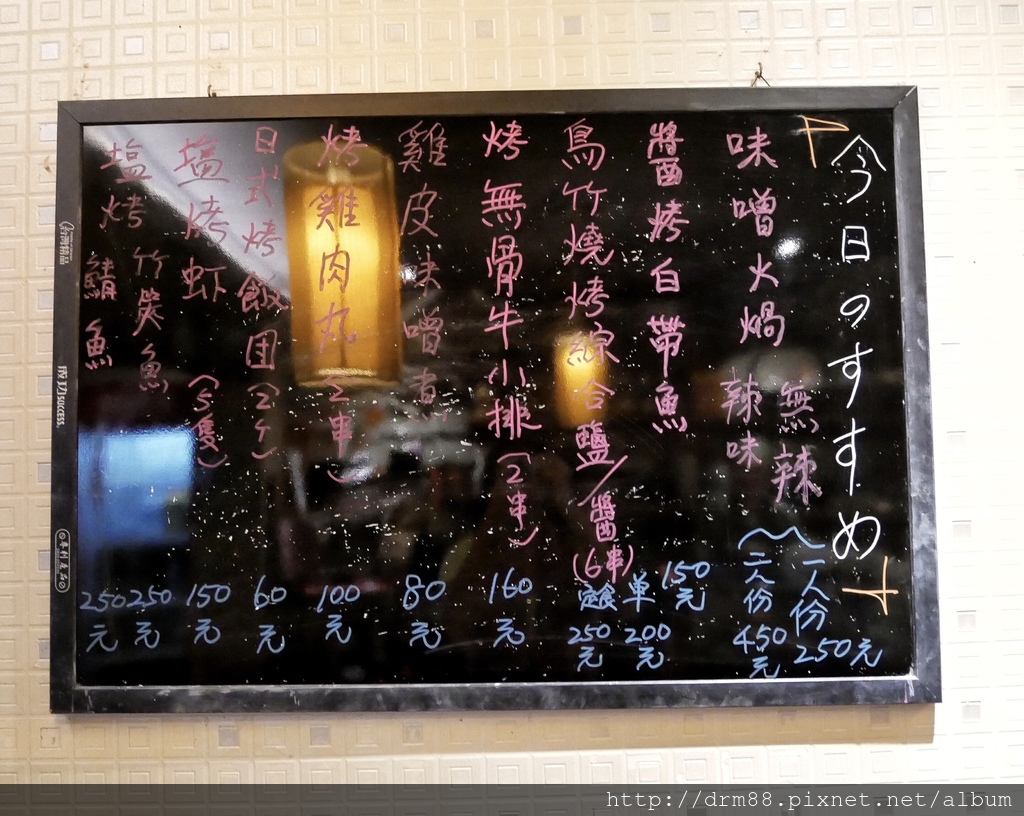 今日のすすめ
味噌火鍋 無辣
辣味
一人份
250元
二人份
450元
醬烤白帶魚
150元
鳥竹燒烤綜合鹽/醬(6串)
單
200元
定食
250元
烤無骨牛小排(2串)
160元
雞皮味噌煮
80元
烤雞肉丸(2串)
100元
日式烤飯团(2ケ)
60元
塩烤虾(5隻)
150元
塩烤 竹炭魚
250元
鯖魚
250元
成功SUCCESS.
專利產品
http://drm88.pixnet.net/album